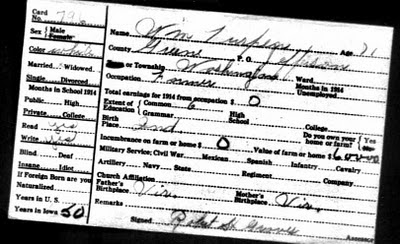 Card No.
Sex Male Female
Color white
Married Widowed
Single Divorced
Months in School 1914
Public High
Private College
Read yes
Write yes
Blind Deaf
Insane Idiot
If Foreign Born are you Naturalized
Years in U. S.
Years in Iowa 50
Name Wm Age 71
County P. O. Jefferson
Town or Township Washington Ward
Occupation Farmer Months in 1914 Unemployed
Total earnings for 1914 from occupation $ 0
Extent of Education Common 6 Grammar High School College
Birth Place Ind Do you own your home or farm? Yes No
Incumbrance on farm or home $ 0 Value of farm or home $
Military Service: Civil War Mexican Spanish Infantry Cavalry
Artillery Navy State Regiment Company
Church Affiliation
Father's Birthplace Vir. Mother's Birthplace Vir.
Remarks
Signed Assessor